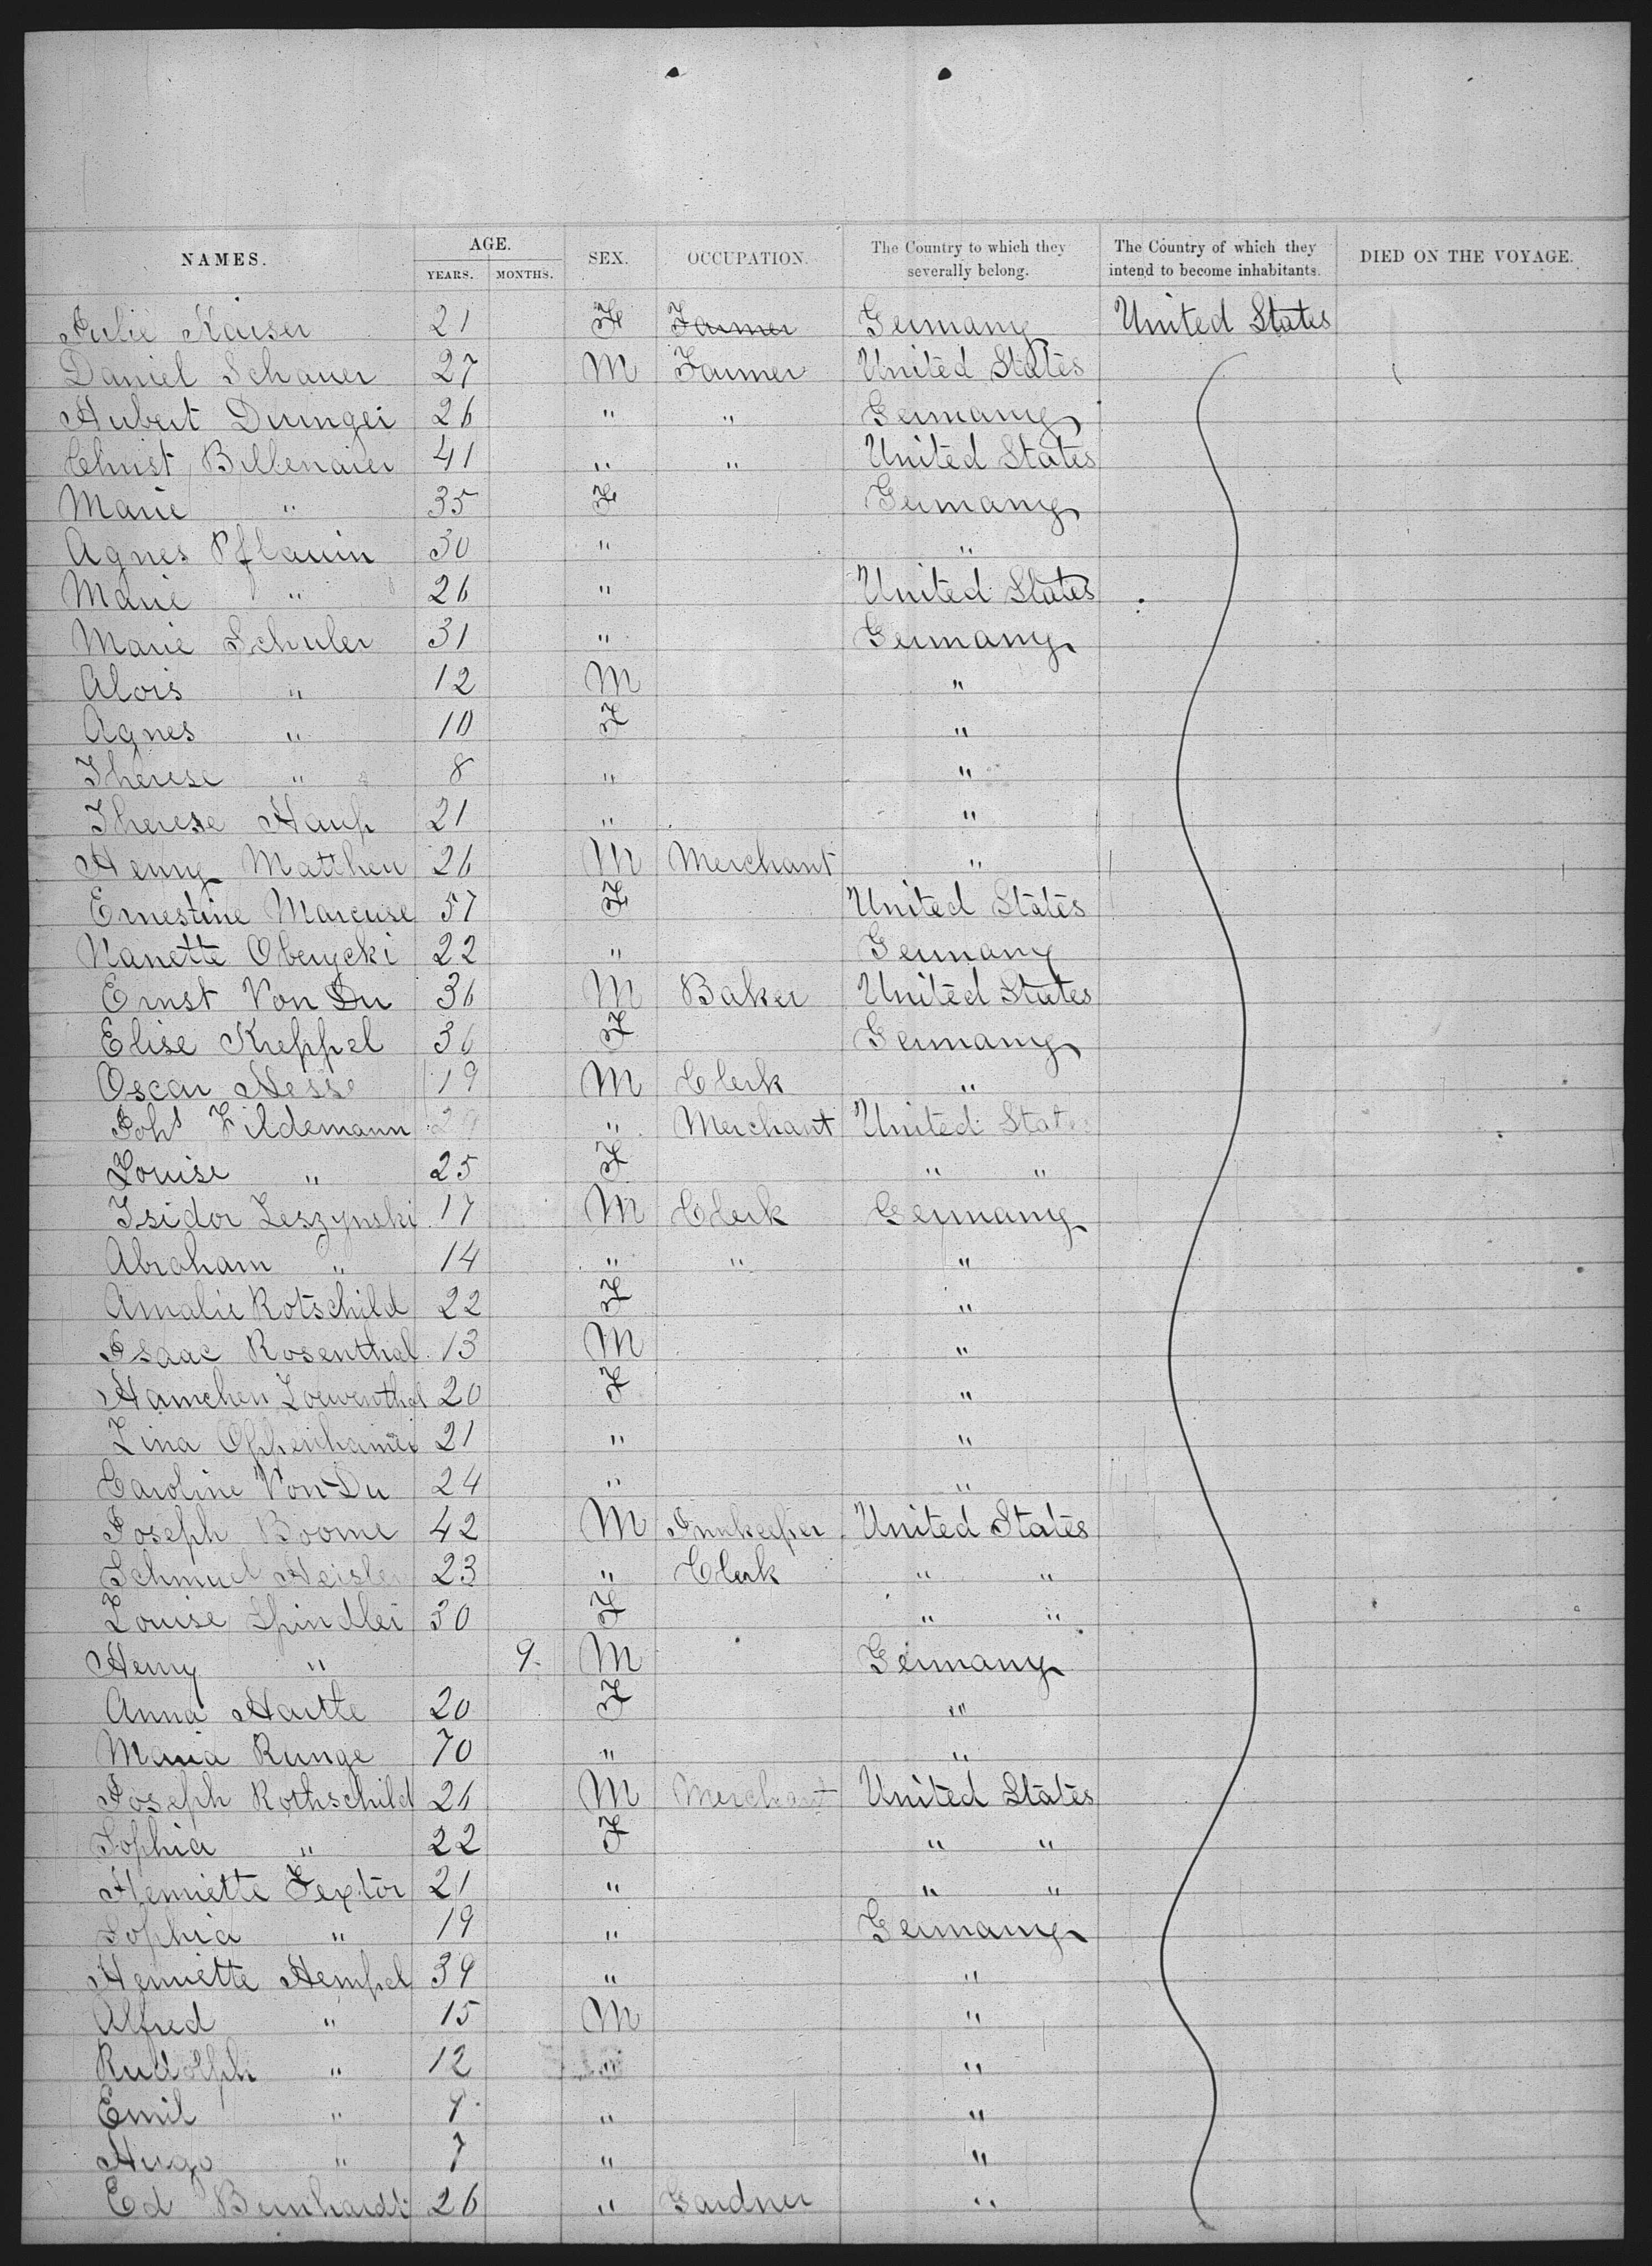 NAMES. AGE. SEX. OCCUPATION. The Country to which they severally belong. The Country of which they intend to become inhabitants. DIED ON THE VOYAGE.
YEARS. MONTHS.
Julie Kaiser 21 F Farmer Germany United States
Daniel Schauer 27 M Farmer United States
Hubert 26 " " Germany
Christ 41 " " United States
Marie " 35 F Germany
Agnes Pflaum 30 " "
Marie " 26 " United States
Marie Schuler 31 " Germany
Alois " 12 M "
Agnes " 10 F "
Therese " 8 " "
Therese Haup 21 " "
Henry Matthew 26 M Merchant "
Ernestine Marcuse 57 F United States
Nanette Oberycki 22 " Germany
Ernst Von Du 36 M Baker United States
Elise Kreppel 36 F Germany
Oscar Hesse 19 M Clerk "
Johs Hildemann 29 " Merchant United States
Louise " 25 F " "
Isidor Leszynski 17 M Clerk Germany
Abraham " 14 " " "
Amalie Rotschild 22 F "
Isaac Rosenthal 13 M "
Hannchen Loewenthal 20 F "
Lina Oppenhamer 21 " "
Caroline Von Du 24 " "
Joseph Boome 42 M Innkeeper United States
Schmuel Heisler 23 " Clerk " "
Louise Spindler 30 F " "
Henry " 9 M Germany
Anna Hartte 20 F "
Maria Runge 70 " "
Joseph Rothschild 26 M Merchant United States
Sophia " 22 F " "
Henriette Textor 21 " " "
Sophia " 19 " Germany
Henriette Hempel 39 " "
Alfred " 15 M "
Rudolph " 12 " "
Emil " 9 " "
Hugo " 7 " "
Ed Bernhardt 26 " Gardner "